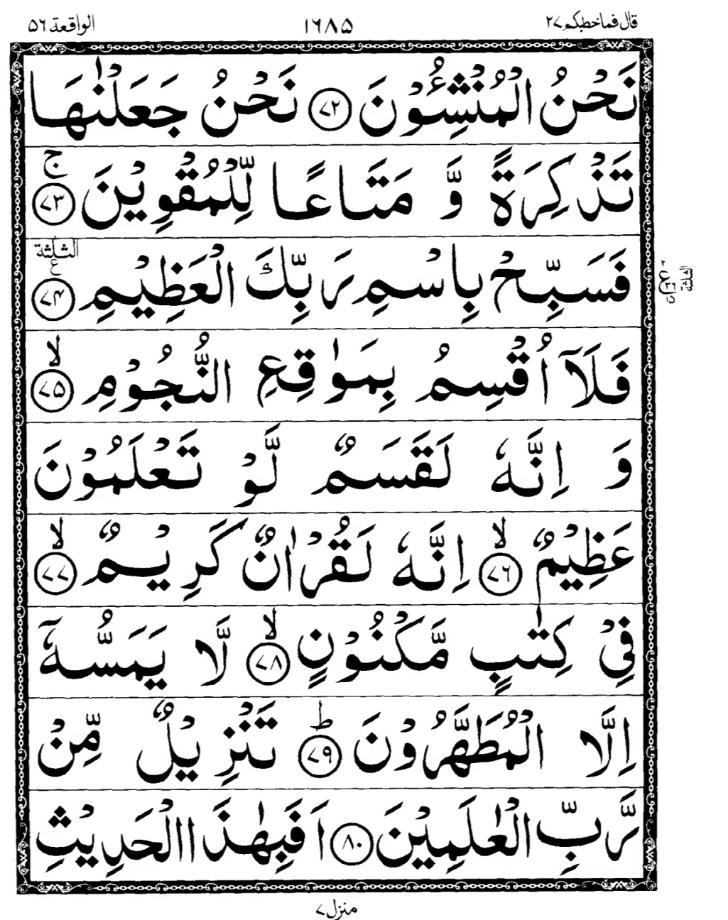 قال فماخطبكم ٢٧ ١٦٨٥ الواقعة ٥٦
نَحْنُ الْمُنْشِـُٔوْنَ ﴿٧٢﴾ نَحْنُ جَعَلْنٰهَا
تَذْكِرَةً وَّ مَتَاعًا لِّلْمُقْوِيْنَ ۚ﴿٧٣﴾
فَسَبِّحْ بِاسْمِ رَبِّكَ الْعَظِيْمِ ﴿٧٤﴾ الثلثة ع
فَلَاۤ اُقْسِمُ بِمَوٰقِعِ النُّجُوْمِ ۙ﴿٧٥﴾
وَ اِنَّهٗ لَقَسَمٌ لَّوْ تَعْلَمُوْنَ
عَظِيْمٌ ۙ﴿٧٦﴾ اِنَّهٗ لَقُرْاٰنٌ كَرِيْمٌ ۙ﴿٧٧﴾
فِيْ كِتٰبٍ مَّكْنُوْنٍ ۙ﴿٧٨﴾ لَّا يَمَسُّهٗۤ
اِلَّا الْمُطَهَّرُوْنَ ؕ﴿٧٩﴾ تَنْزِيْلٌ مِّنْ
رَّبِّ الْعٰلَمِيْنَ ﴿٨٠﴾ اَفَبِهٰذَا الْحَدِيْثِ
منزل ٧